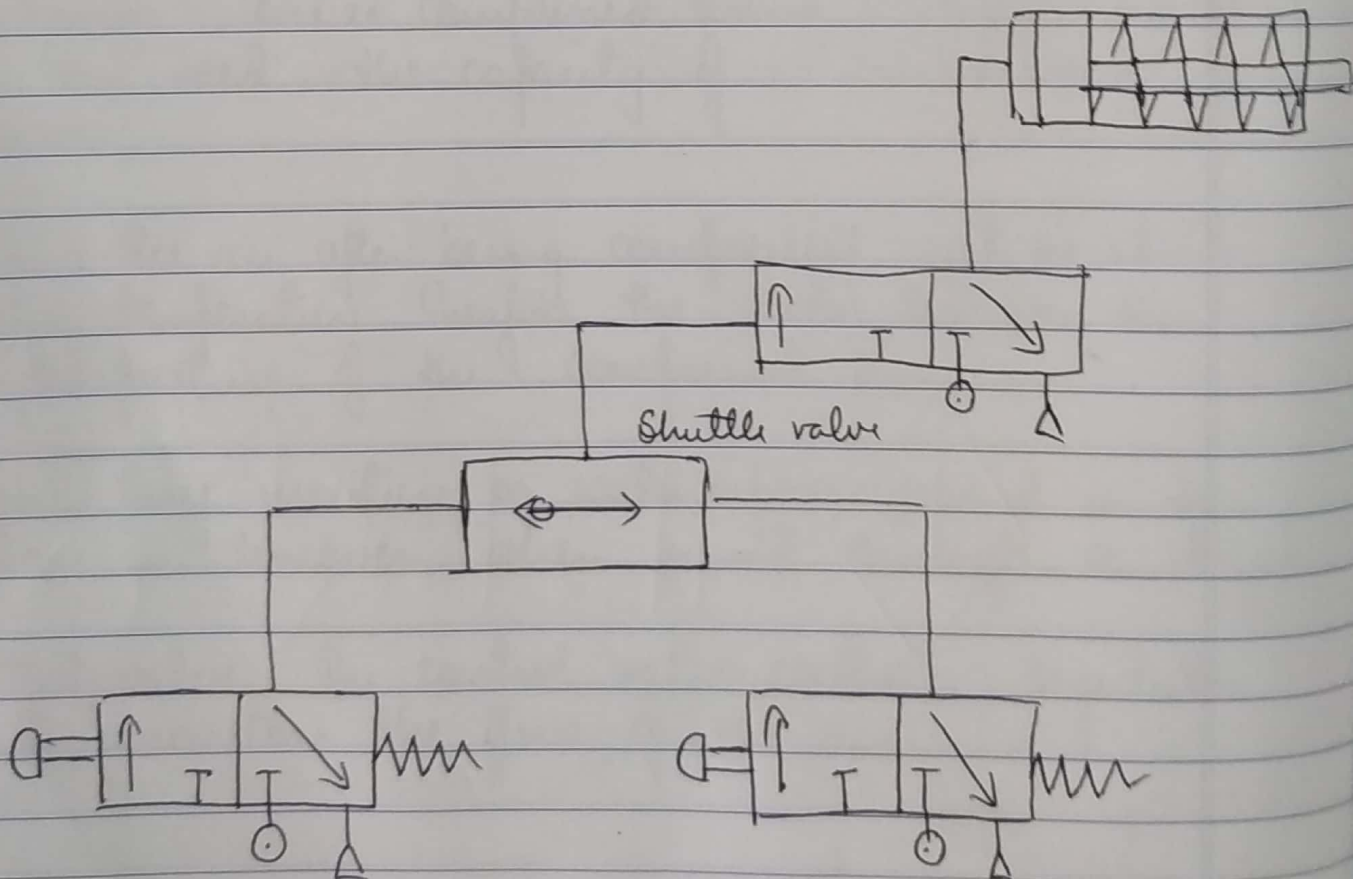 Shuttle valve